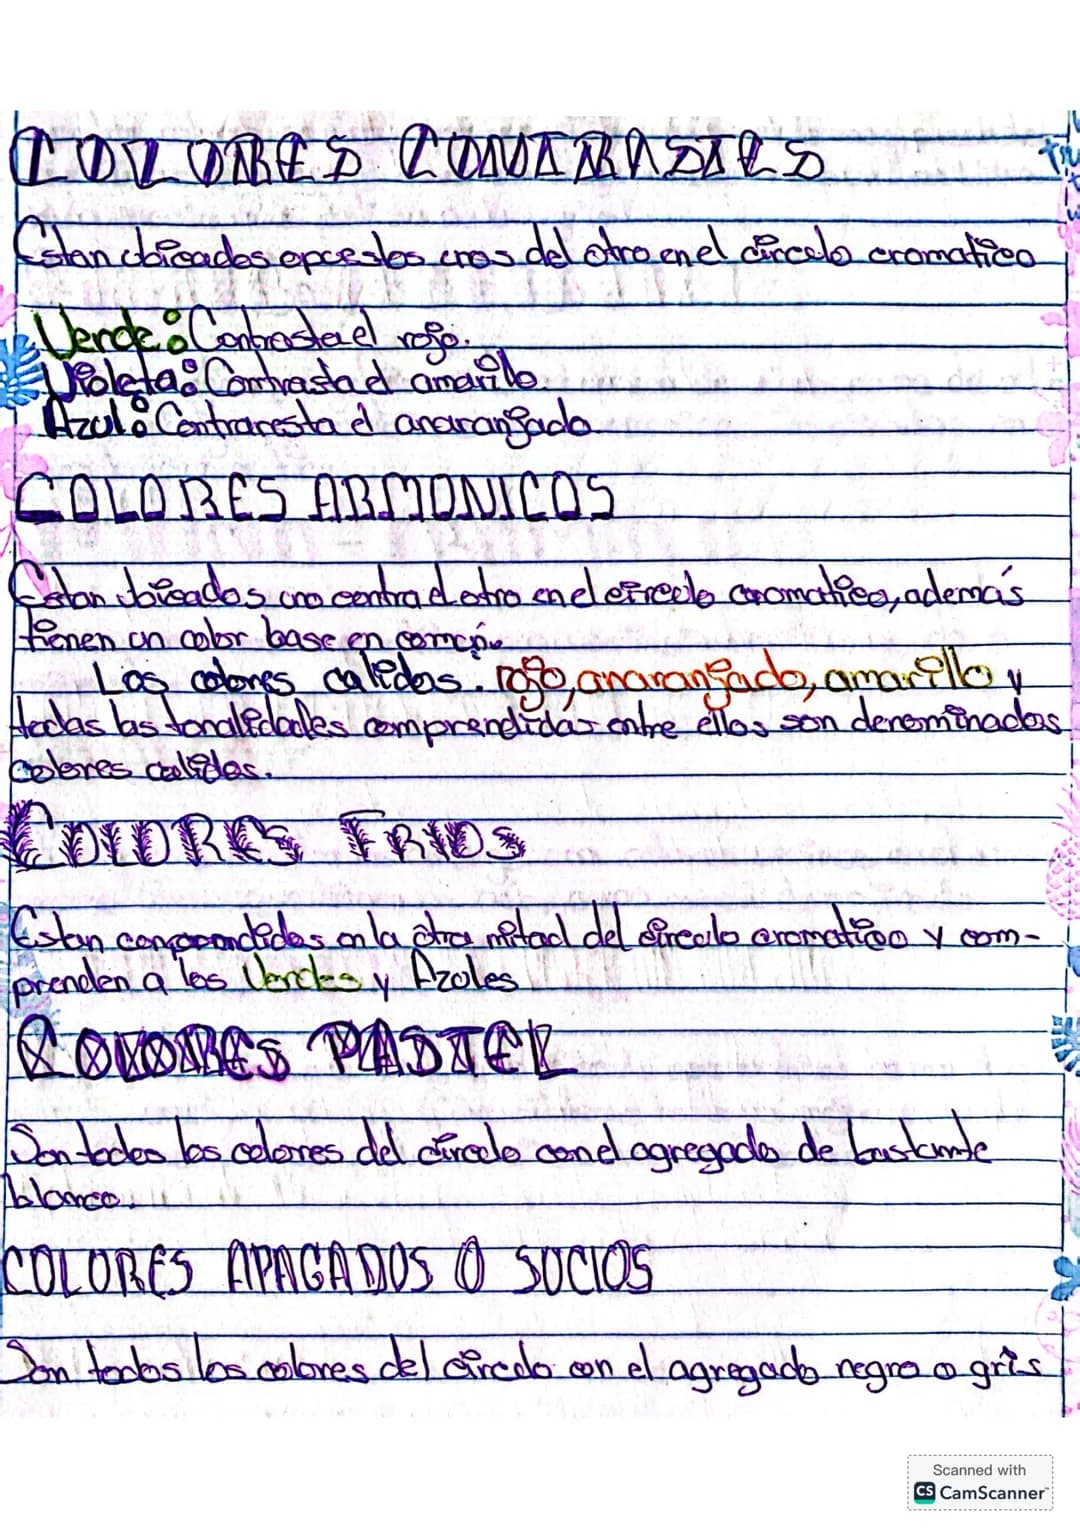 COLORES CONTRASTES
Estan ubicados opuestos unos del otro en el circulo cromatico
Verde: Contrasta el rojo.
Violeta: Contrasta el amarillo.
Azul: Contraresta el anaranjado.
COLORES ARMONICOS
Estan ubicados uno contra el otro en el circulo cromatico, además
tienen un color base en común.
Los colores calidos. rojo, anaranjado, amarillo y
todas las tonalidades comprendidas entre ellos son denominados
colores calidos.
COLORES FRIOS
Estan comprendidos en la otra mitad del circulo cromatico y com-
prenden a los Verdes y Azules
COLORES PASTEL
Son todos los colores del circulo con el agregado de bastante
blanco.
COLORES APAGADOS O SUCIOS
Son todos los colores del circulo con el agregado negro o gris
Scanned with
CS CamScanner